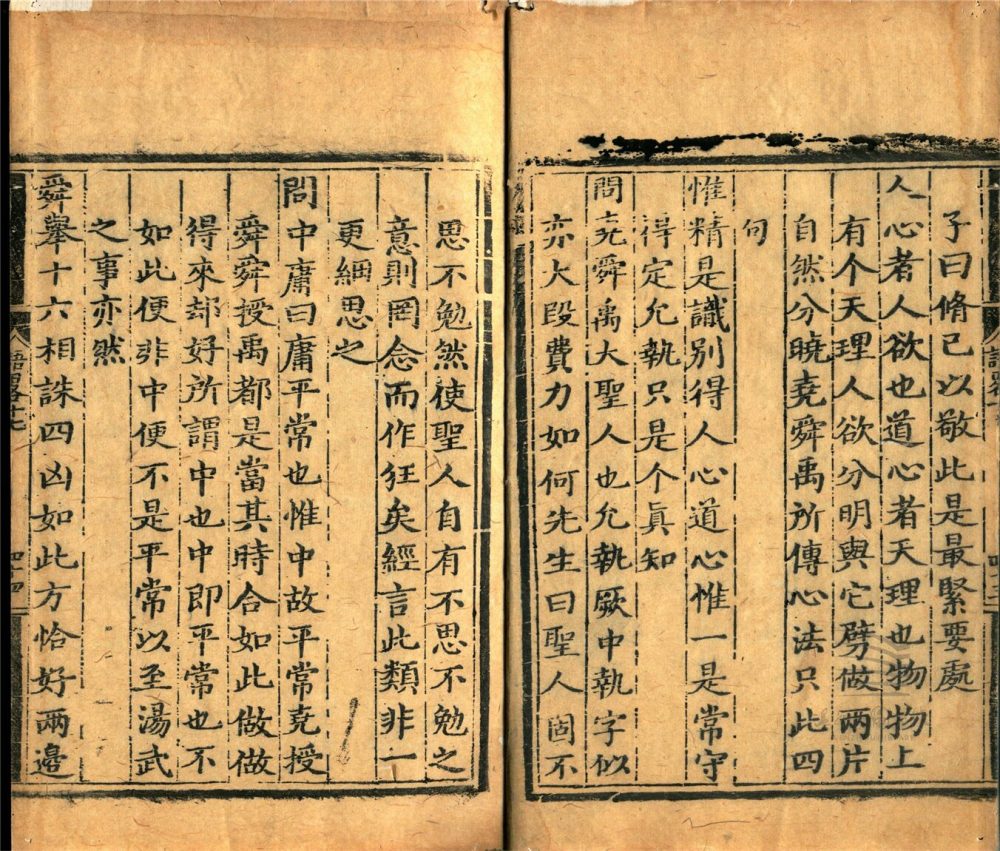 子曰脩己以敬此是最緊要處
人心者人欲也道心者天理也物物上
有个天理人欲分明與它劈做兩片
自然分曉堯舜禹所傳心法只此四
句
惟精是識別得人心道心惟一是常守
得定允執只是个眞知
問堯舜禹大聖人也允執厥中執字似
亦大段費力如何先生曰聖人固不
思不勉然使聖人自有不思不勉之
意則罔念而作狂矣經言此類非一
更細思之
問中庸曰庸平常也惟中故平常堯授
舜舜授禹都是當其時合如此做做
得來却好所謂中也中即平常也不
如此便非中便不是平常以至湯武
之事亦然
舜舉十六相誅四凶如此方恰好兩邊